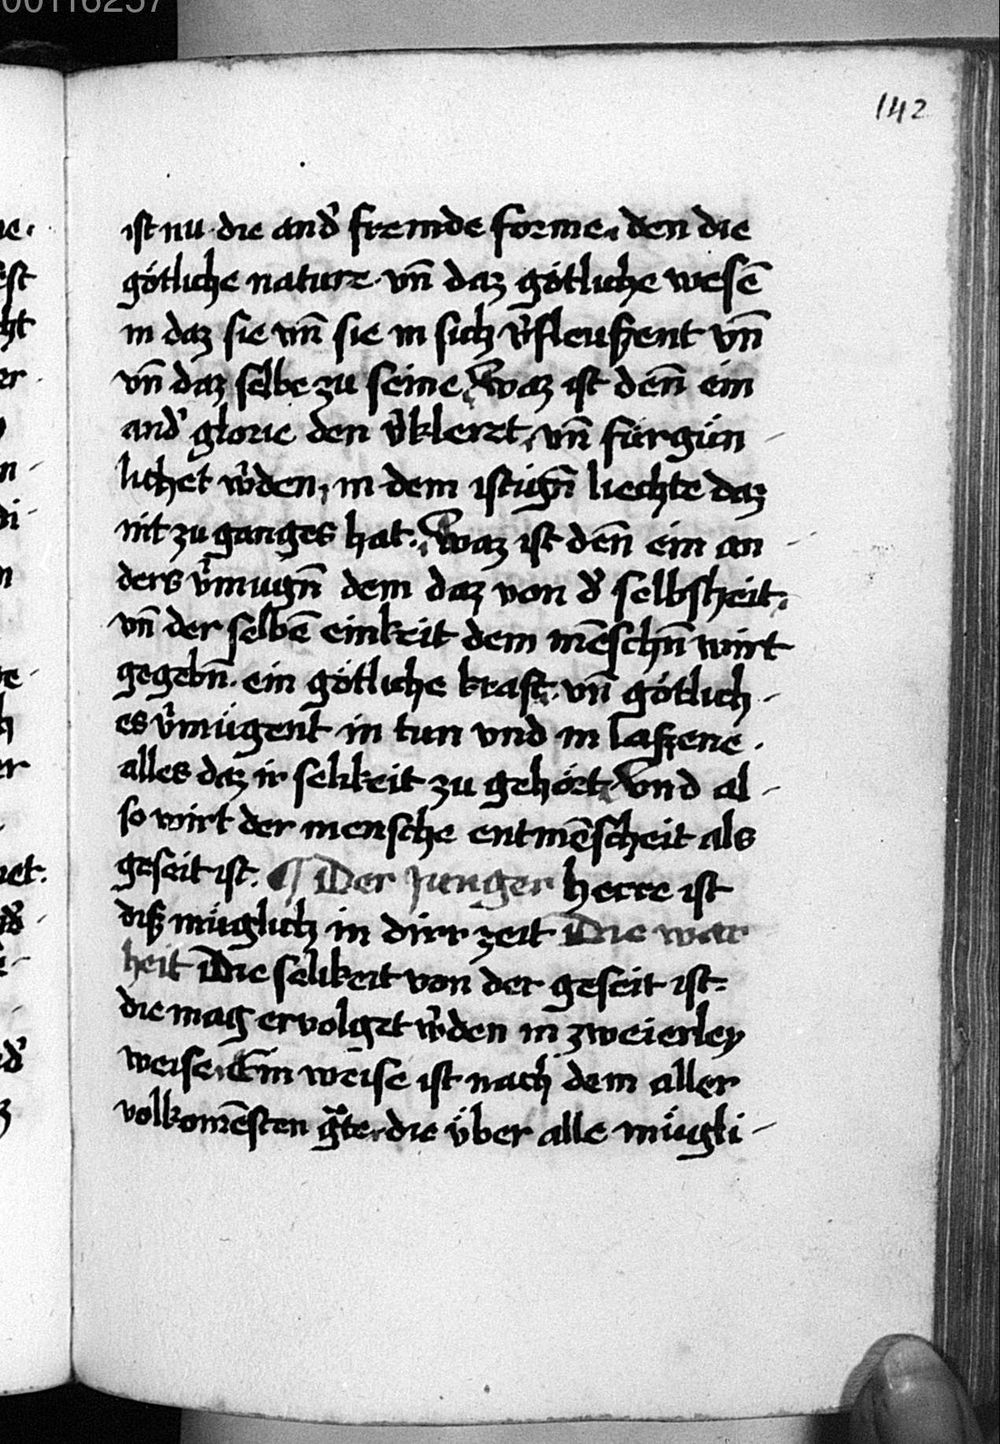 00116237
142
ist nu die and᾽ fremde forme. den die
götliche nature. vn̄ daz götliche wesē
in daz sie vn̄ sie in sich v᾽fleuſzent vn̄
vn̄ daz selbe zu seine. Waz ist den̄ ein
and᾽ glorie den v᾽klerzt, vn̄ fürgün -
lichet w᾽den, in dem istign̄ liechte daz
nit zu ganges hat. Waz ist den̄ ein an -
ders v᾽mugn̄ dem daz von d᾽ selbsheit.
vn̄ der selbē einkeit dem mēschn̄ wirt
gegebn̄. ein götliche kraft. vn̄ götlich -
es v᾽mügent in tun vnd in laſzene .
alles daz ir selikeit zu gehört. Vnd al -
so wirt der mensche entmēscheit als
geseit ist. ¶ Der junger herre ist
diſz müglich in dirr zeit Die war
heit Die selikeit von der geseit ist:
die mag ervolget w᾽den in zweierley
weise. Ein weise ist nach dem aller
volkomēsten g᾽te. die über alle mügli -